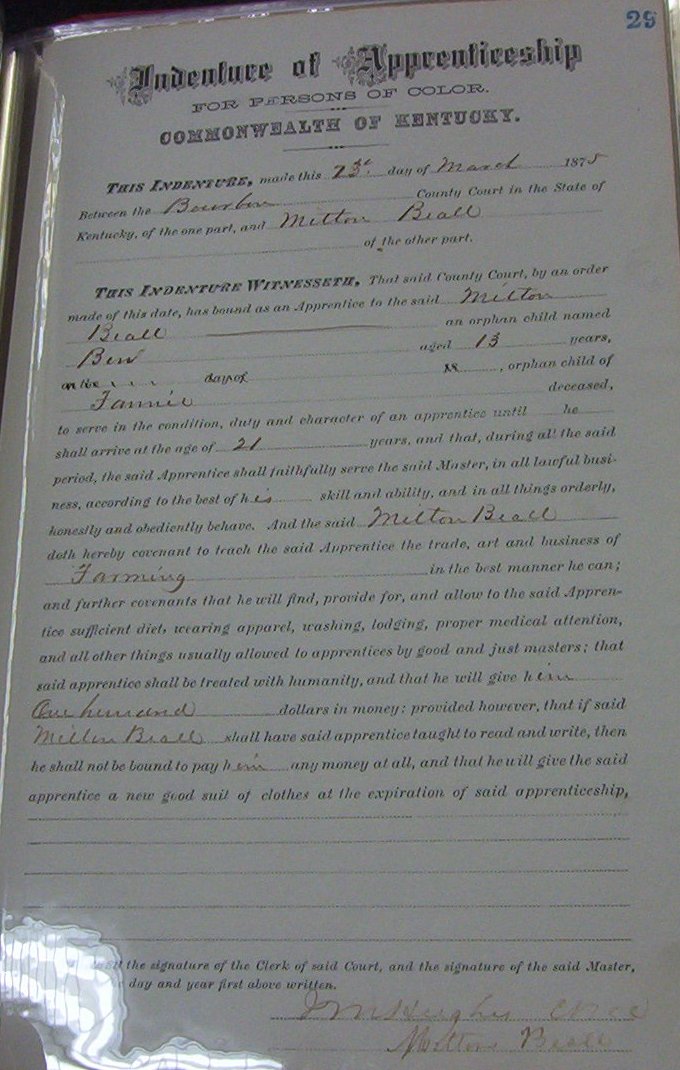 29
Indenture of Apprenticeship
FOR PERSONS OF COLOR.
COMMONWEALTH OF KENTUCKY.
THIS INDENTURE, made this 23d. day of March 1875
Between the Bourbon County Court in the State of
Kentucky, of the one part, and Milton Beall
of the other part.
THIS INDENTURE WITNESSETH, That said County Court, by an order
made of this date, has bound as an Apprentice to the said Milton
Beall an orphan child named
Ben aged 13 years,
on the day of 18 , orphan child of
Fannie deceased,
to serve in the condition, duty and character of an apprentice until he
shall arrive at the age of 21 years, and that, during all the said
period, the said Apprentice shall faithfully serve the said Master, in all lawful busi-
ness, according to the best of his skill and ability, and in all things orderly,
honestly and obediently behave. And the said Milton Beall
doth hereby covenant to teach the said Apprentice the trade, art and business of
Farming in the best manner he can;
and further covenants that he will find, provide for, and allow to the said Appren-
tice sufficient diet, wearing apparel, washing, lodging, proper medical attention,
and all other things usually allowed to apprentices by good and just masters; that
said apprentice shall be treated with humanity, and that he will give him
One hundred dollars in money: provided however, that if said
Milton Beall shall have said apprentice taught to read and write, then
he shall not be bound to pay him any money at all, and that he will give the said
apprentice a new good suit of clothes at the expiration of said apprenticeship,
the signature of the Clerk of said Court, and the signature of the said Master,
day and year first above written.
Hughes
Milton Beall